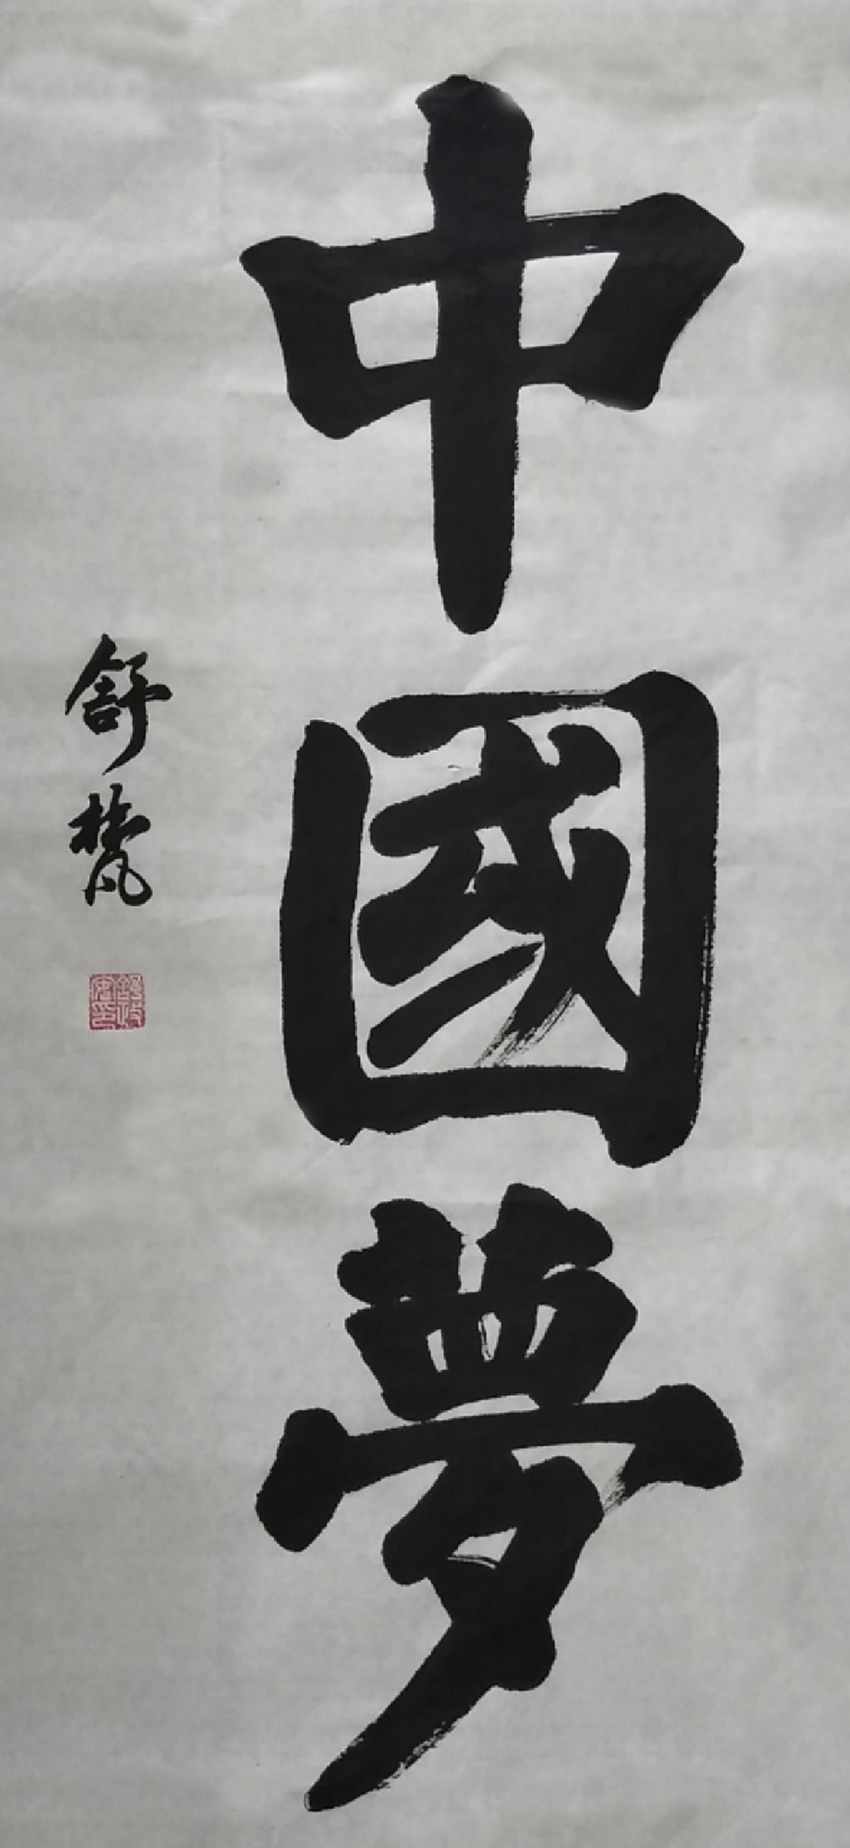 中國夢
舒梵